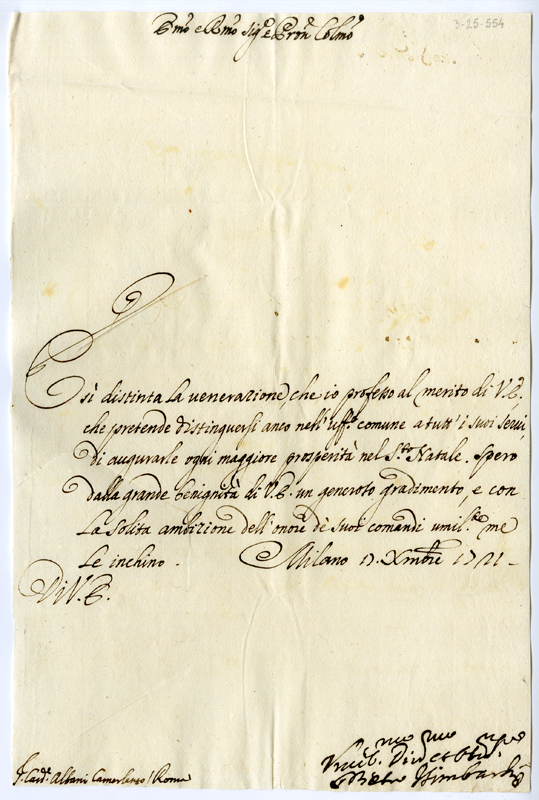 Emo e Rmo Sig.e Pron Colmo
3-25-554
È sì distinta la venerazione, che io professo al merito di V.E.
che pretende distinguersi anco nell'uff.o comune a tutt'i suoi servi,
di augurarle ogni maggiore prosperità nel S.to Natale. Spero
dalla grande benignità di V.E. un generoso gradimento, e con
la solita ambizione dell'onore de suoi comandi umil.te me
Le inchino. Milano 17. Xmbre 1721
Di V.E.
S. Card.e Albani Camerlengo / Roma